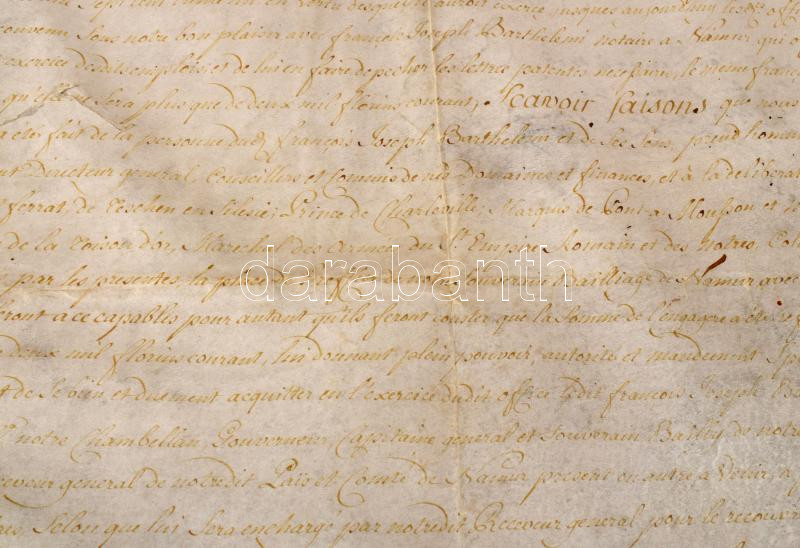 convenu sous notre bon plaisir avec françois Joseph Barthelemi notaire a Namur qui
exercice desdits emplois et de lui en faire depecher les lettres patentes necessaires, le meme
qu'elle ne sera plus que de deux mil florins courant, Scavoir faisons que nous
a ete fait de la personne dudt françois Joseph Barthelemi et de ses sens, preud'homm
nt Directeur general, Conseillers et Commis de nos Domaines et finances, et à la deliberat
ferrat, de Teschen en Silesie, Prince de Charleville, Marquis de Pont-a-Mousson et
de la Toison d'or, Marechal des Armées du St Empire Romain et des notres,
par les presentes, la place de Greffier de notre Souverain Bailliage de Namur avec
darabanth
ront a ce capables pour autant qu'ils feront conster que la somme de l'engagere a ete
deux mil florins courant, lui donnant plein pouvoir, autorite et mandement
de se bien et duement acquitter en l'exercice dudit office ledit françois Joseph
notre Chambellan, Gouverneur, Capitaine general et souverain Bailly de notre
ceveur general de notredit Païs et Comté de Namur present ou autre a venir,
selon que lui sera enchargé par notredit Receveur general pour le recouvr